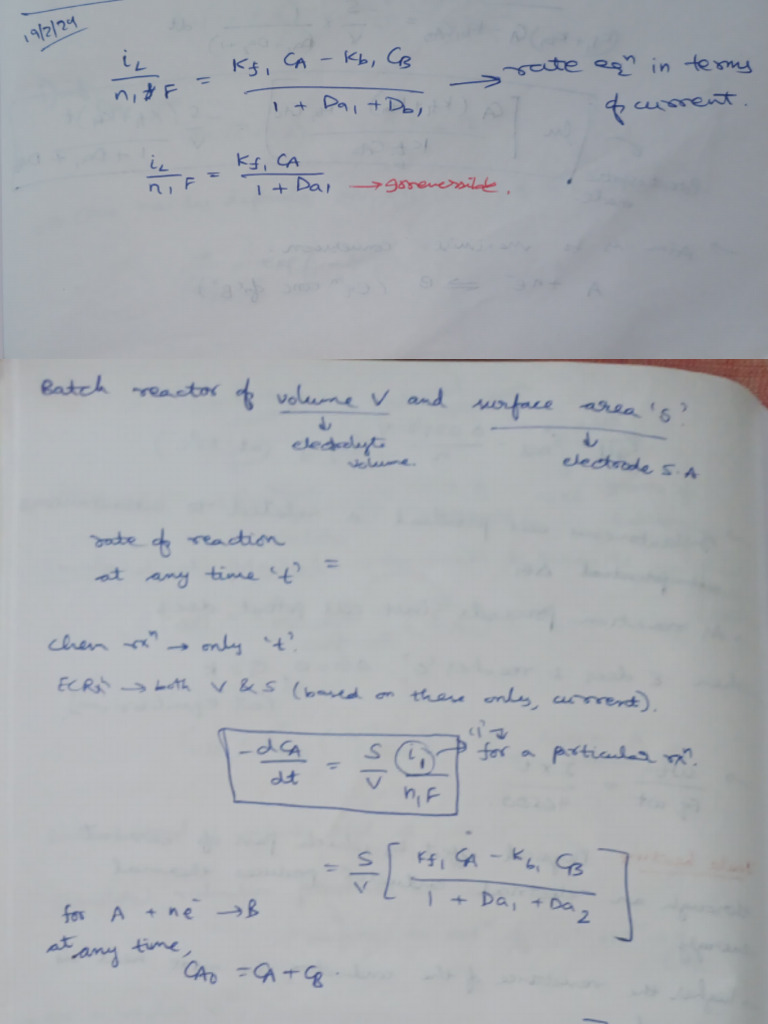 19/2/24
i_L / n₁ F = (K_f₁ C_A − K_b₁ C_B) / (1 + Da₁ + Db₁) → rate eqⁿ in terms
of current.
i_L / n₁ F = K_f₁ C_A / (1 + Da₁) → irreversible.
Batch reactor of volume V and surface area 's'.
↓ electrolyte volume.
↓ electrode S.A
rate of reaction
at any time 't' =
Chem rxⁿ → only 't'.
ECRxⁿ → both V & S (based on these only, current).
−dC_A / dt = S/V i₁ / n₁F → '1' → for a particular rxⁿ.
= S/V [ (K_f₁ C_A − K_b₁ C_B) / (1 + Da₁ + Da₂) ]
for A + ne⁻ → B
at any time,
C_A₀ = C_A + C_B.